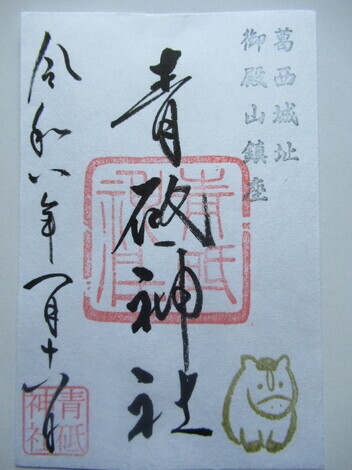 葛西城址
御殿山鎮座
青砥神社
青砥
神社
令和八年一月十一日
青砥
神社